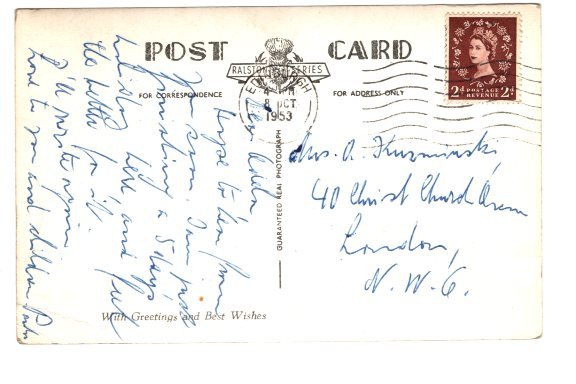 POST CARD
RALSTON SERIES
FOR CORRESPONDENCE
FOR ADDRESS ONLY
EDINBURGH
8 OCT
1953
2d POSTAGE REVENUE 2d
GUARANTEED REAL PHOTOGRAPH
hope to hear from
you soon. I am just
spending a 5 days
holiday here, and feel
the better for it.
I'll write again
Love to you and children
Mrs. A. Kuzminski
40 Christ Church Avenue
London,
N.W.6.
With Greetings and Best Wishes